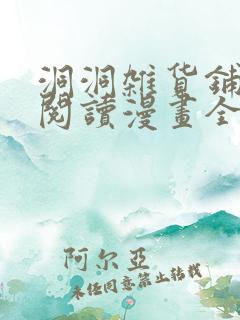 洞洞雜货鋪
閱讀漫畫全
阿尔亚
未经同意禁止转载